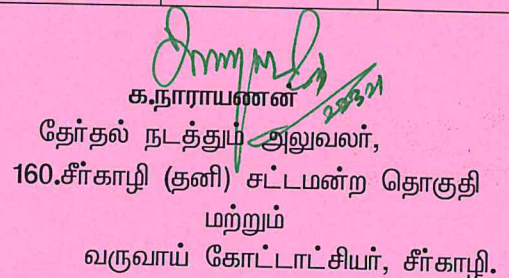 க.நாராயணன்
தேர்தல் நடத்தும் அலுவலர்,
160.சீர்காழி (தனி) சட்டமன்ற தொகுதி
மற்றும்
வருவாய் கோட்டாட்சியர், சீர்காழி.